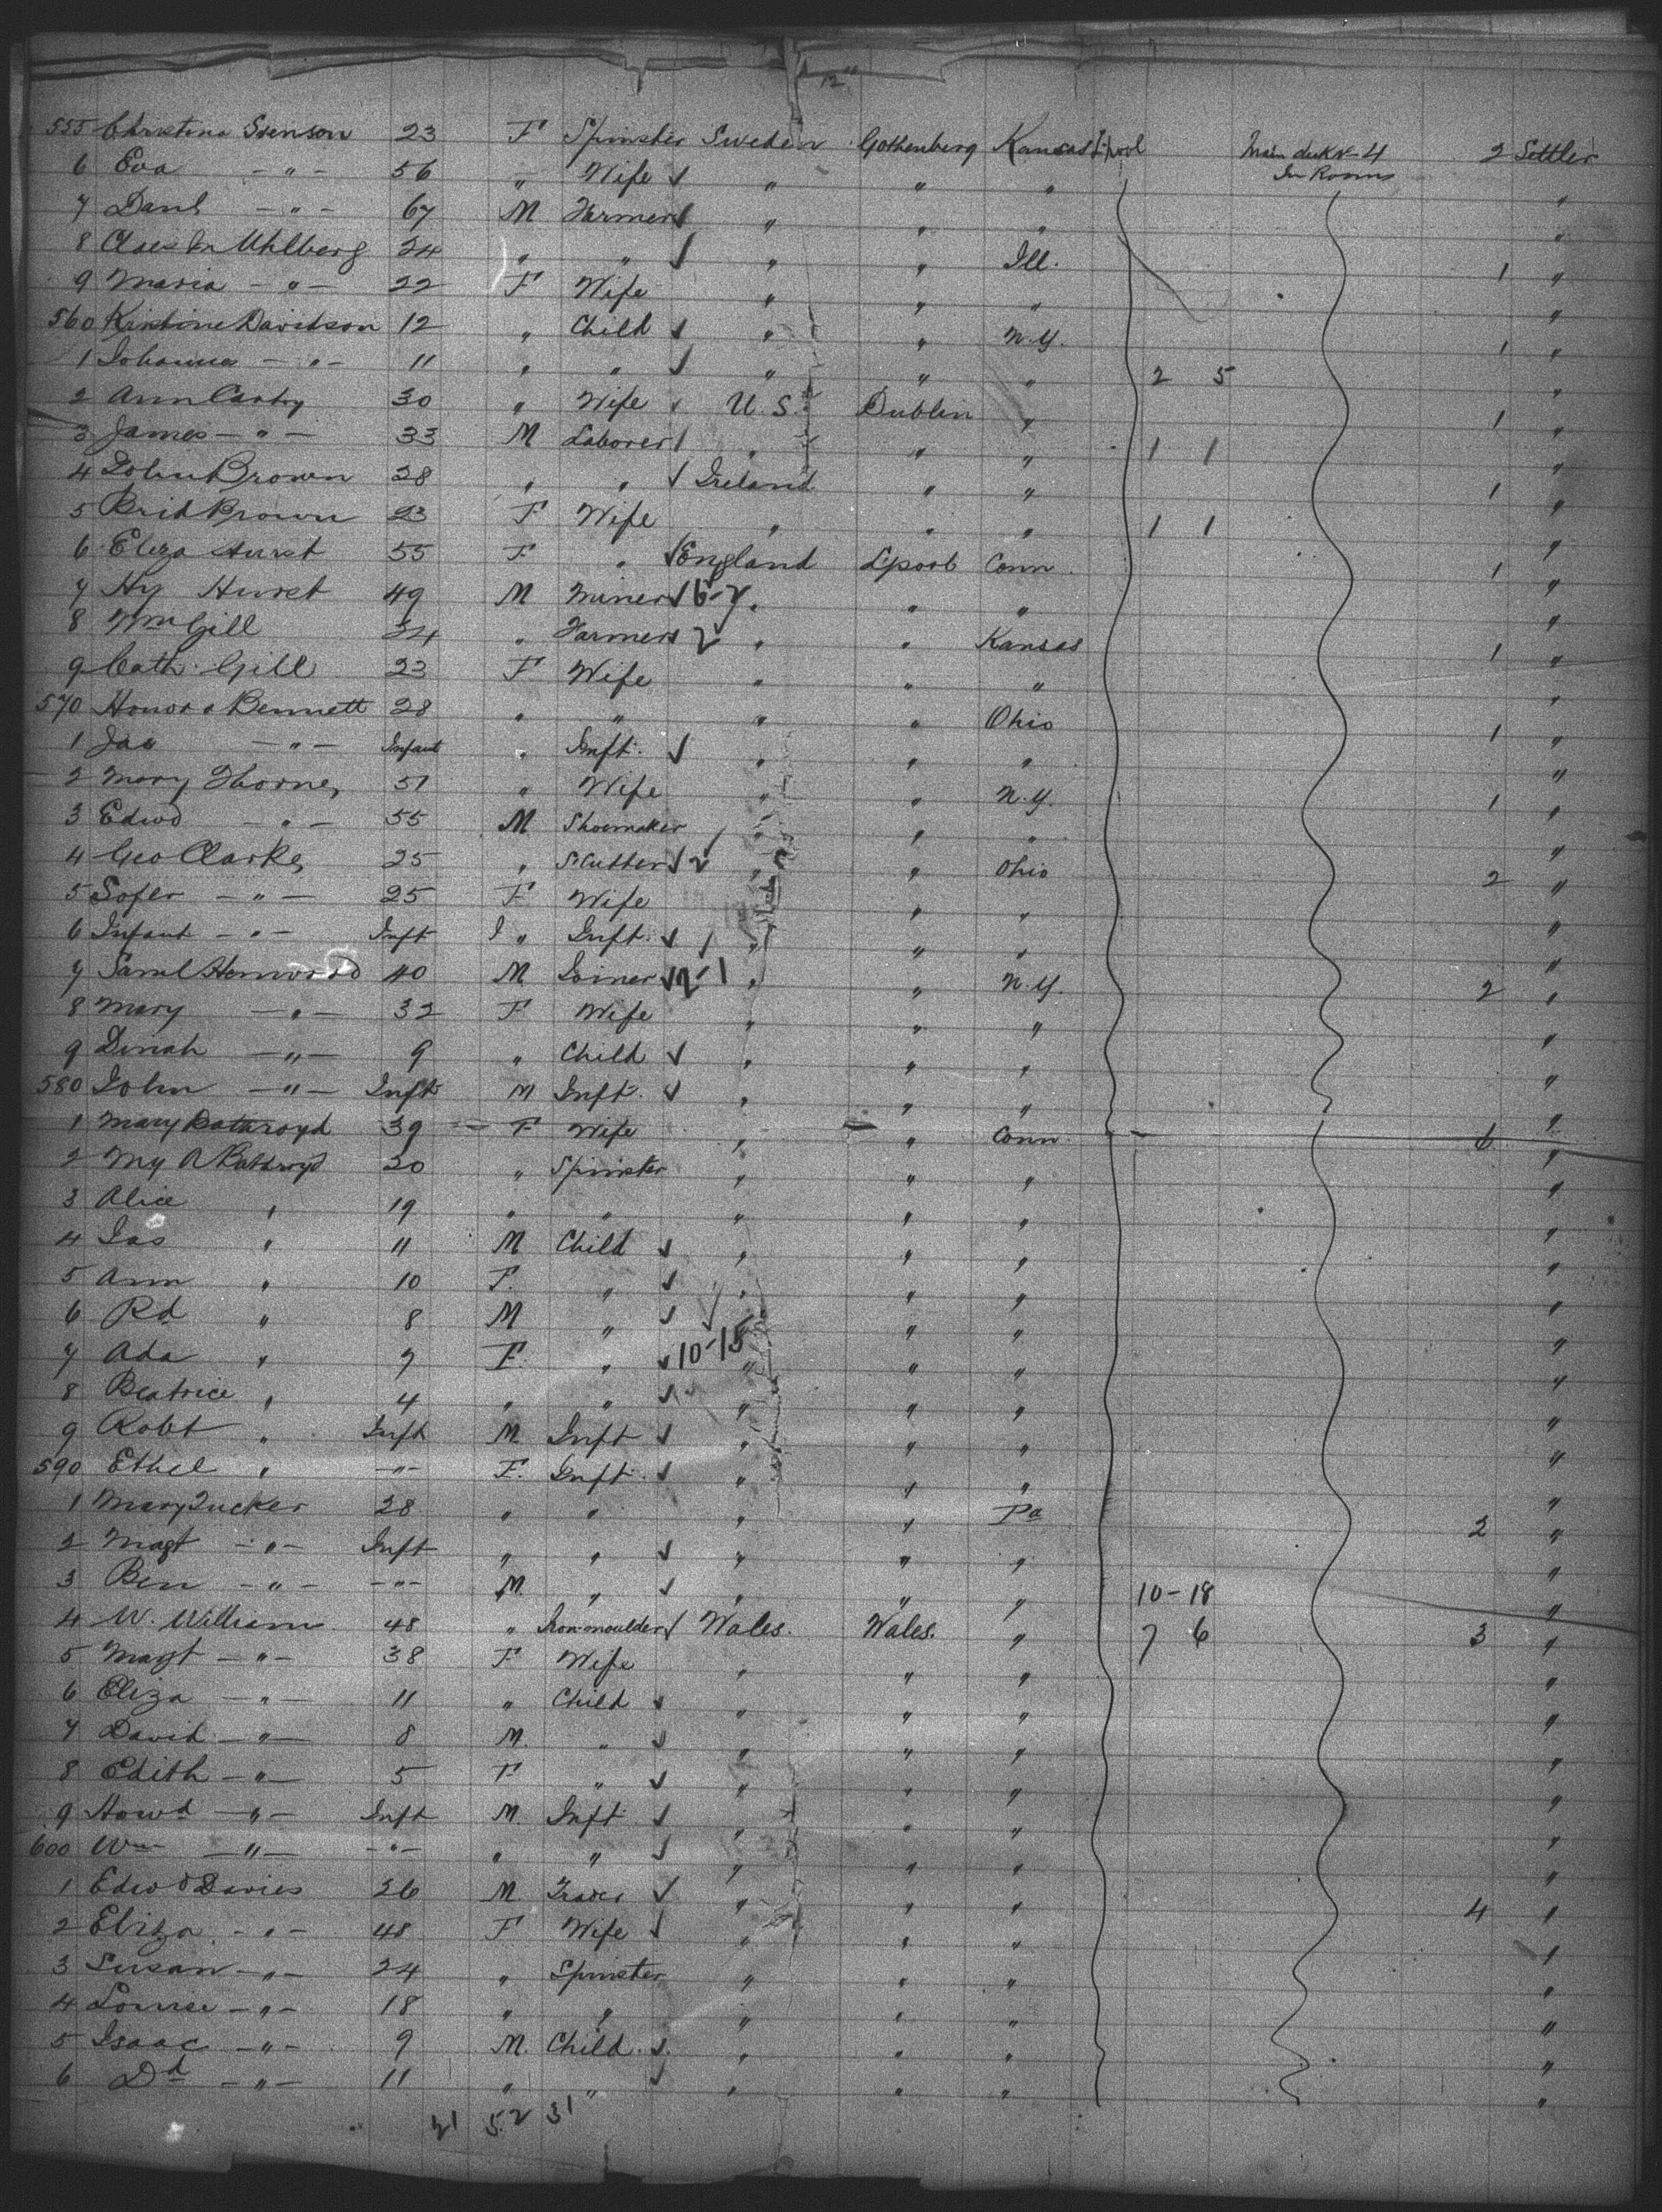 12"
555 Christina Svenson 23 F Spinster Sweden Gothenberg Kansas L'pool Main deck 4 2 Settler
6 Eva - " - 56 " Wife ✓ " " " In Rooms "
7 Danl - " - 67 M Farmer ✓ " " " "
8 Claes Uhlberg 24 " " ✓ " " Ill. 1 "
9 Maria - " - 22 F Wife " " " "
560 Kristine Davidson 12 " Child ✓ " " N.Y. 1 "
1 Johanna - " - 11 " " ✓ " " " 2 5 "
2 Ann Carby 30 " Wife ✓ U.S. Dublin " 1 "
3 James - " - 33 M Laborer ✓ " " " 1 1 "
4 John Brown 28 " " ✓ Ireland " " 1 "
5 Brid Brown 23 F Wife " " " 1 1 "
6 Eliza Hurst 55 F " ✓ England Lpool Conn. 1 "
7 Hy Hurst 49 M Miner ✓ 6-7 " " " "
8 Wm Gill 34 " Farmer 2 " " Kansas 1 "
9 Cath Gill 23 F Wife " " " "
570 Honora Bennett 28 " " " " Ohio 1 "
1 Jas - " - Infant " Inft. ✓ " " " "
2 Mary Thorne 51 " Wife " " N.Y. 1 "
3 Edwd - " - 55 M Shoemaker ✓ " " " "
4 Geo Clarke 25 " S. Cutter ✓ 2 " " Ohio 2 "
5 Sofer - " - 25 F Wife " " " "
6 Infant - " - Inft " Inft. ✓ " " " "
7 Saml Henwood 40 M Joiner ✓ 2-1 " " N.Y. 2 "
8 Mary - " - 32 F Wife " " " "
9 Dinah - " - 9 " Child ✓ " " " "
580 John - " - Inft M Inft. ✓ " " " "
1 Mary Bothroyd 39 F Wife " " Conn. 6 "
2 My A Bothroyd 20 " Spinster " " " "
3 Alice " 19 " " " " " "
4 Jas " 11 M Child ✓ " " " "
5 Ann " 10 F. " ✓ " " " "
6 Rd " 8 M " ✓ " " " "
7 Ada " 7 F. " ✓ 10-15 " " " "
8 Beatrice " 4 " " ✓ " " " "
9 Robt " Inft M Inft ✓ " " " "
590 Ethel " - " - F. Inft. ✓ " " " "
1 Mary Tucker 28 " " " " Pa 2 "
2 Magt - " - Inft " " ✓ " " " "
3 Ben - " - - " - M. " ✓ " " " 10-18 "
4 W. William 48 " Iron moulder ✓ Wales. Wales. " 7 6 3 "
5 Magt - " - 38 F Wife " " " "
6 Eliza - " - 11 " Child ✓ " " " "
7 David - " - 8 M. " ✓ " " " "
8 Edith - " - 5 F " ✓ " " " "
9 Howd - " - Inft M. Inft ✓ " " " "
600 Wm - " - - " - " " ✓ " " " "
1 Edwd Davies 36 M. ✓ " " " 4 "
2 Eliza - " - 48 F Wife ✓ " " " "
3 Susan - " - 24 " Spinster " " " "
4 Louise - " - 18 " " " " " "
5 Isaac - " - 9 M. Child ✓ " " " "
6 Dd - " - 11 " " ✓ " " " "
21 52 31